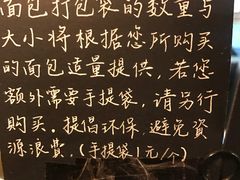 面包打包袋的数量与
大小将根据您所购买
的面包适量提供,若您
额外需要手提袋,请另行
购买.提倡环保,避免資
源浪費.(手提袋1元/个)